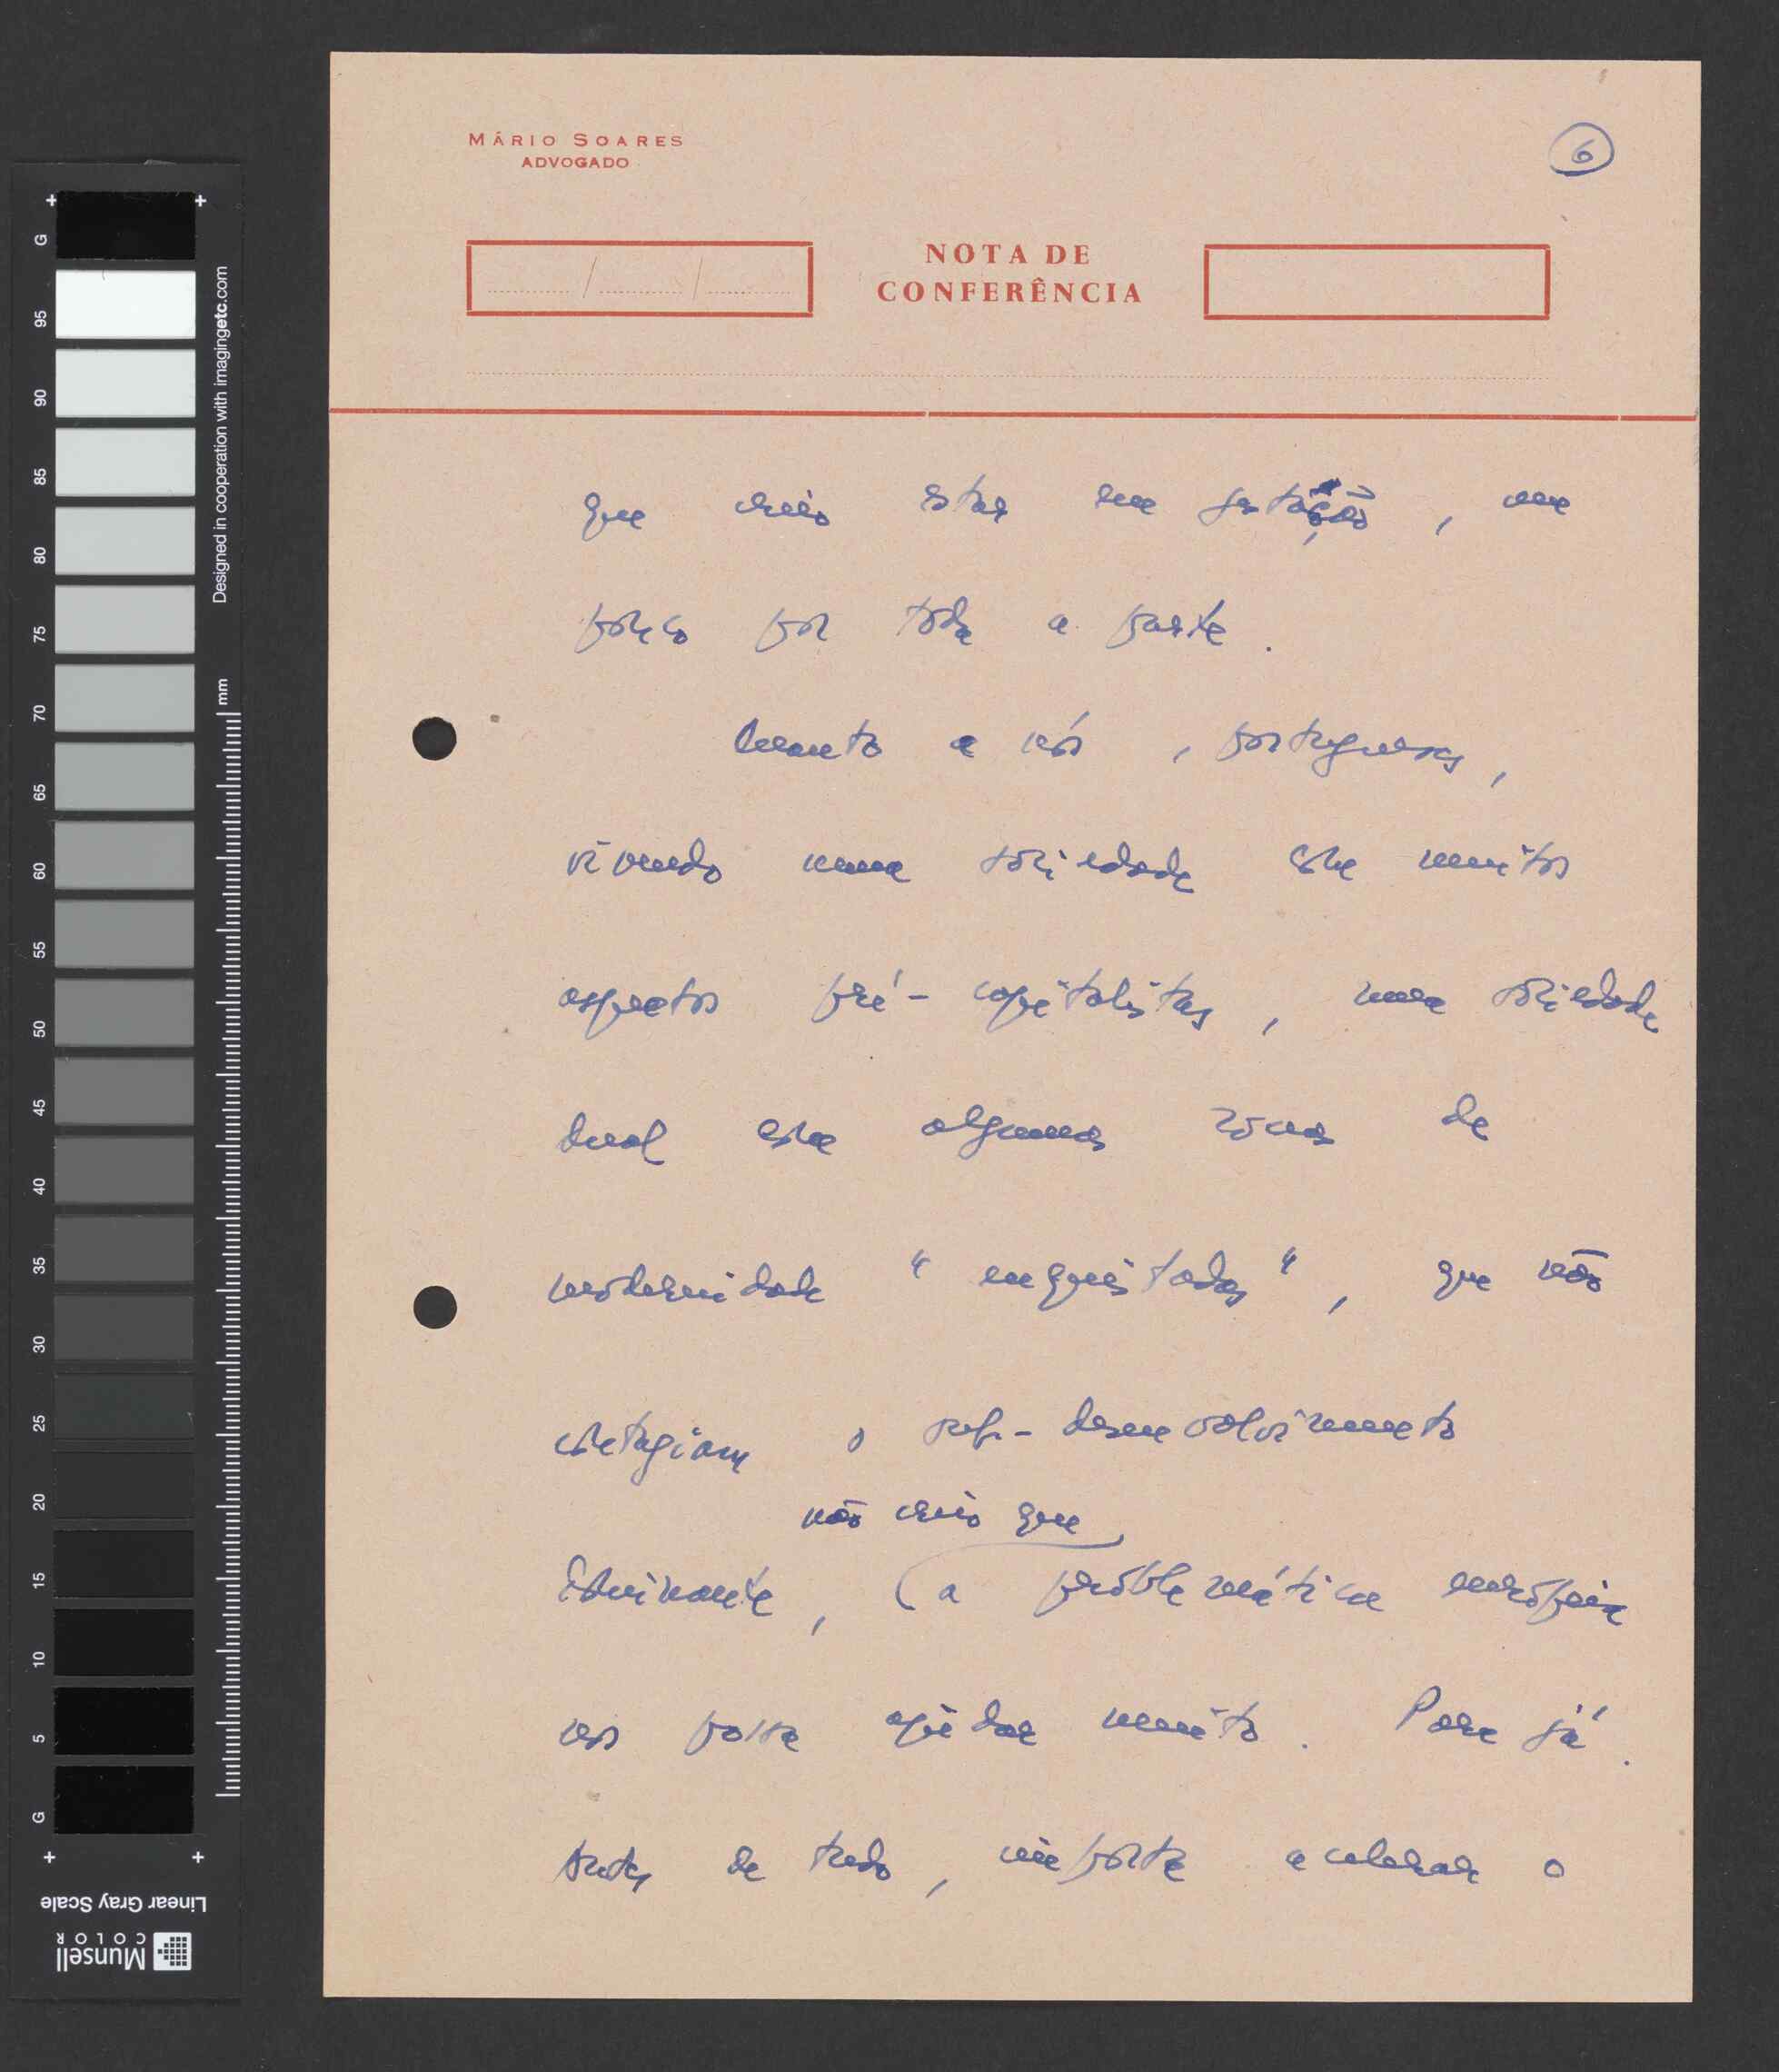 MÁRIO SOARES
ADVOGADO
6
NOTA DE
CONFERÊNCIA
que creio estar em gestação, um
pouco por toda a parte.
Quanto a nós, portugueses,
vivendo numa sociedade com muitos
aspectos pré-capitalistas, uma sociedade
dual com algumas zonas de
modernidade "enquistadas", que não
contagiam o sub-desenvolvimento
não creio que
dominante, (a problemática europeia
nos possa ajudar muito. Para já.
Antes de tudo, importa acelerar o
G
95
90
85
80
75
70
65
60
55
50
45
40
35
30
25
20
15
10
5
G
mm
Designed in cooperation with imagingetc.com
Linear Gray Scale
Munsell
COLOR